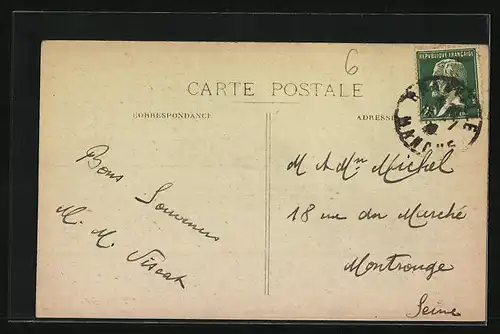 6
REPUBLIQUE FRANÇAISE
CARTE POSTALE
CORRESPONDANCE
ADRESSE
MANCHE
Bons
Souvenirs
M. M. Viscat
M & Mme Michel
18 rue du Marché
Montrouge
Seine